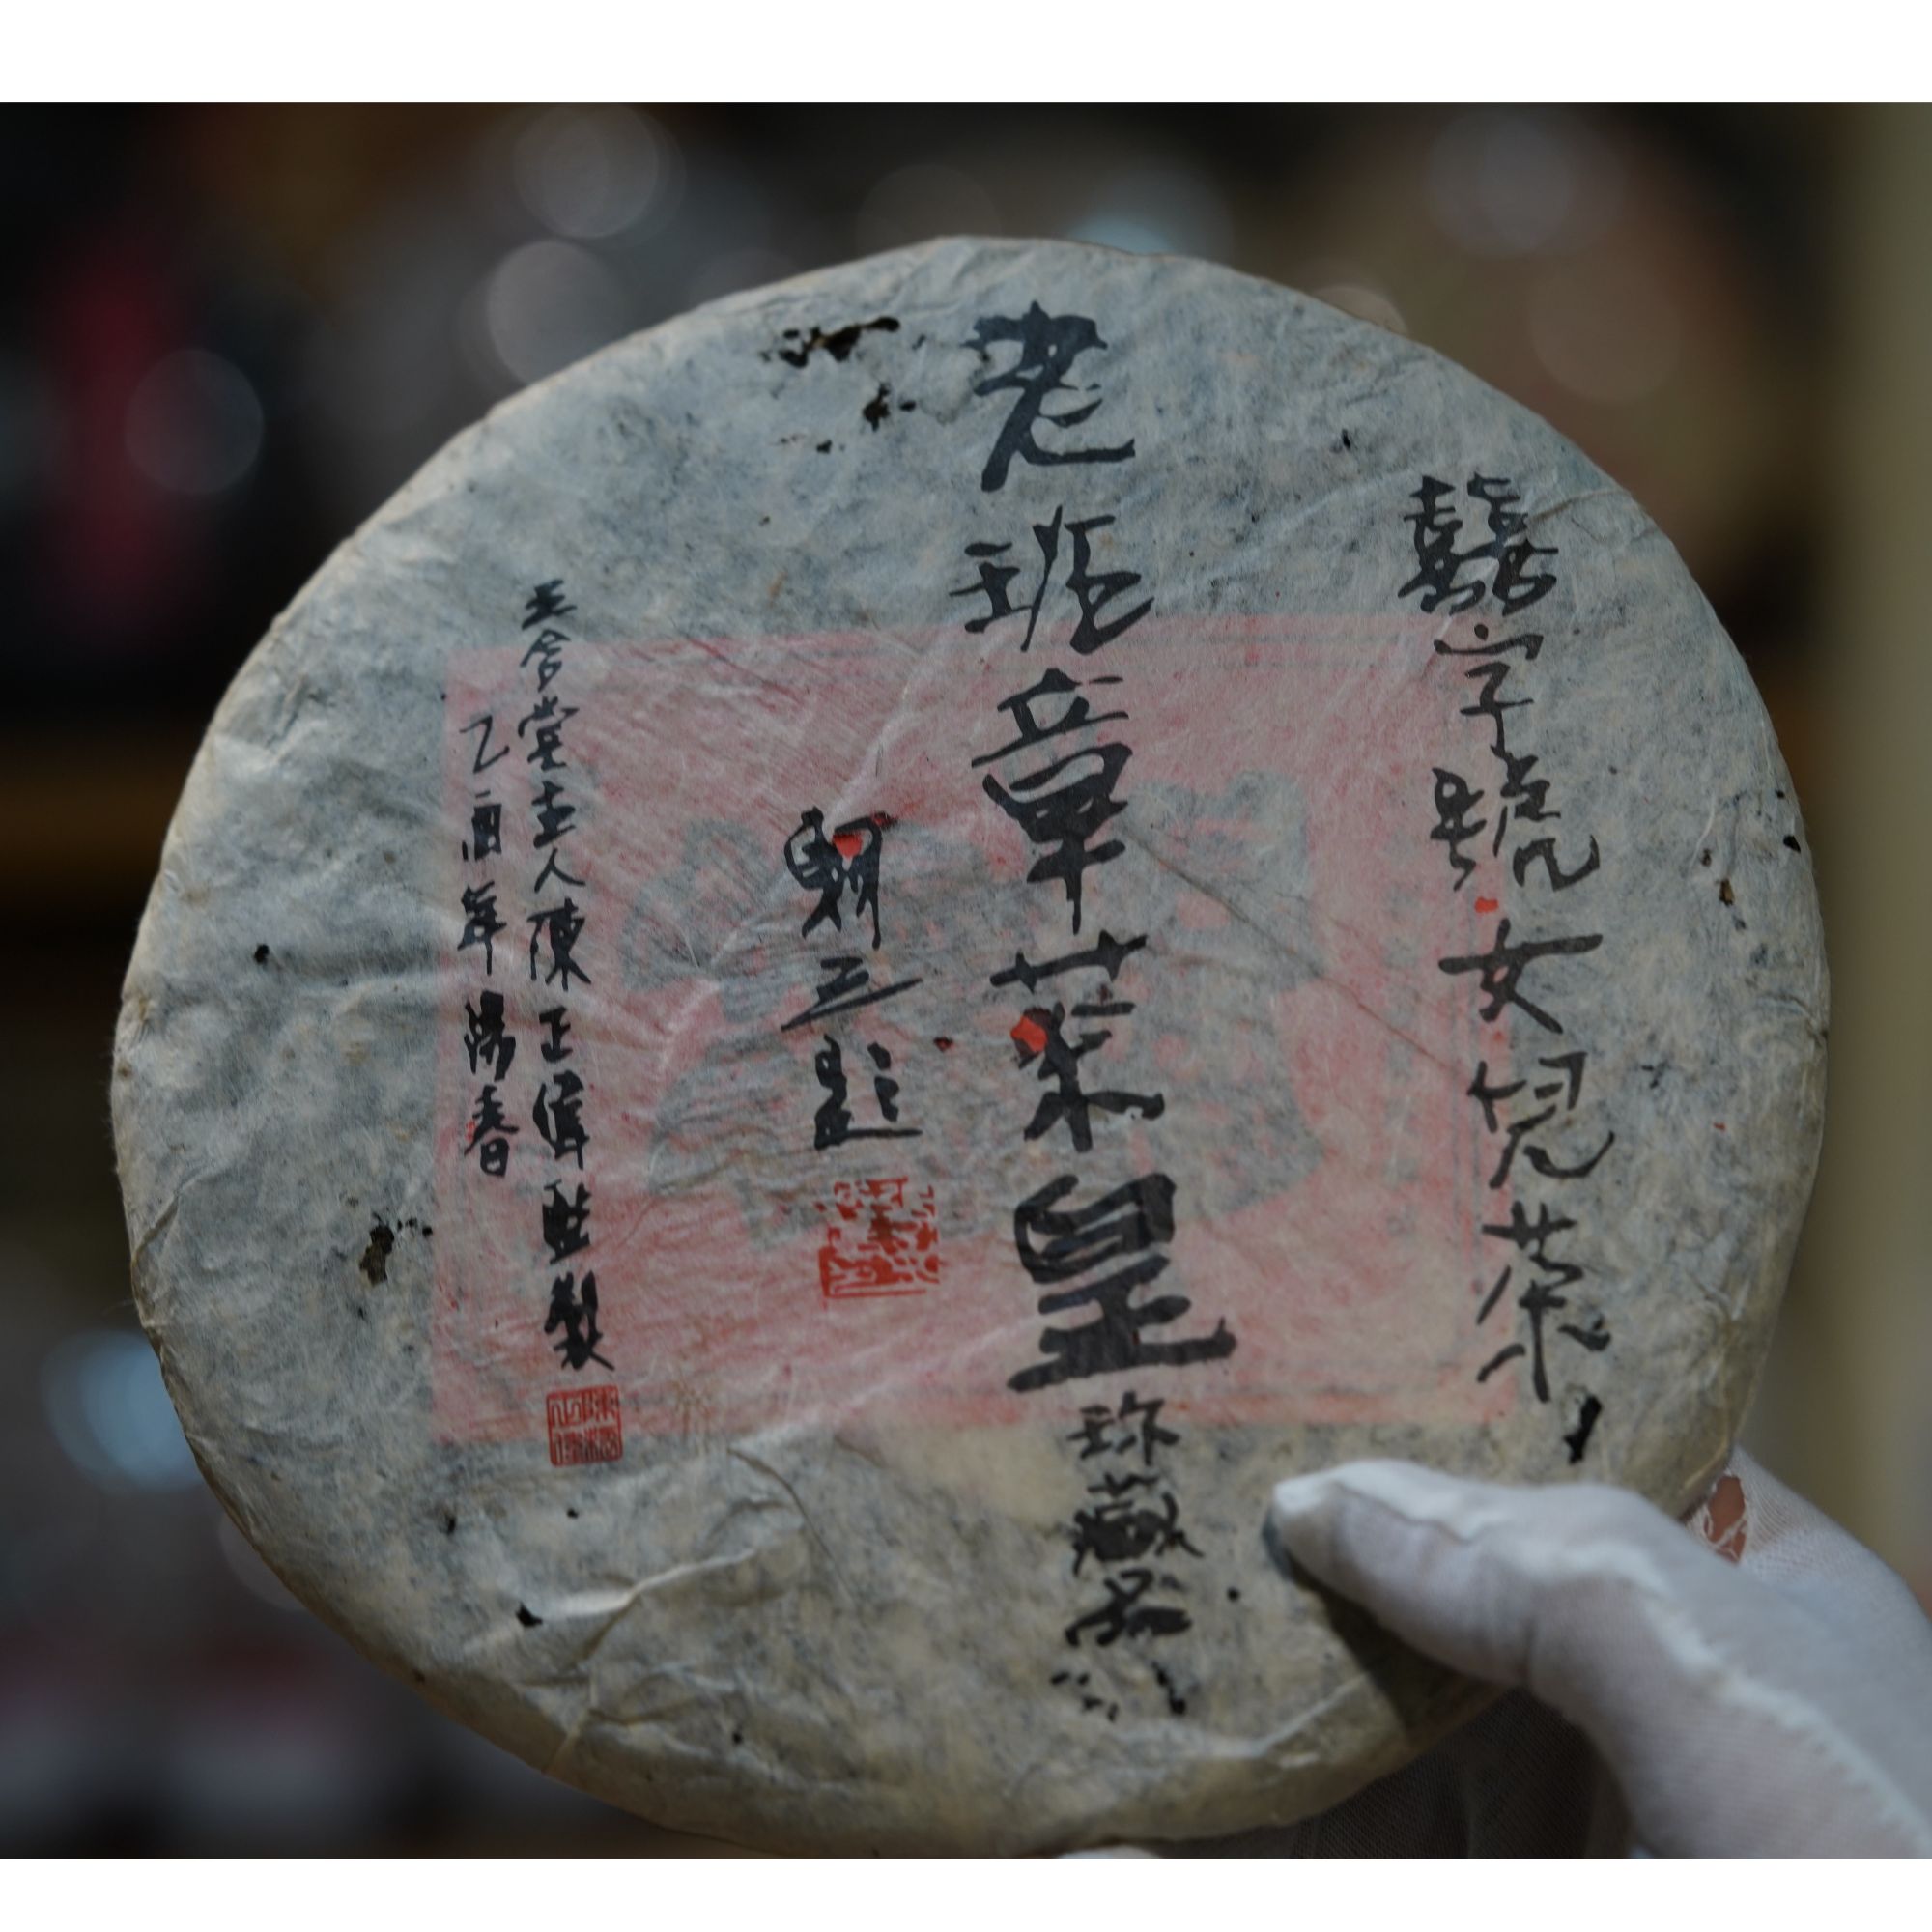 囍字號女兒茶
老班章茶皇珍藏品
題
合堂主人陳正偉監製
乙酉年陽春